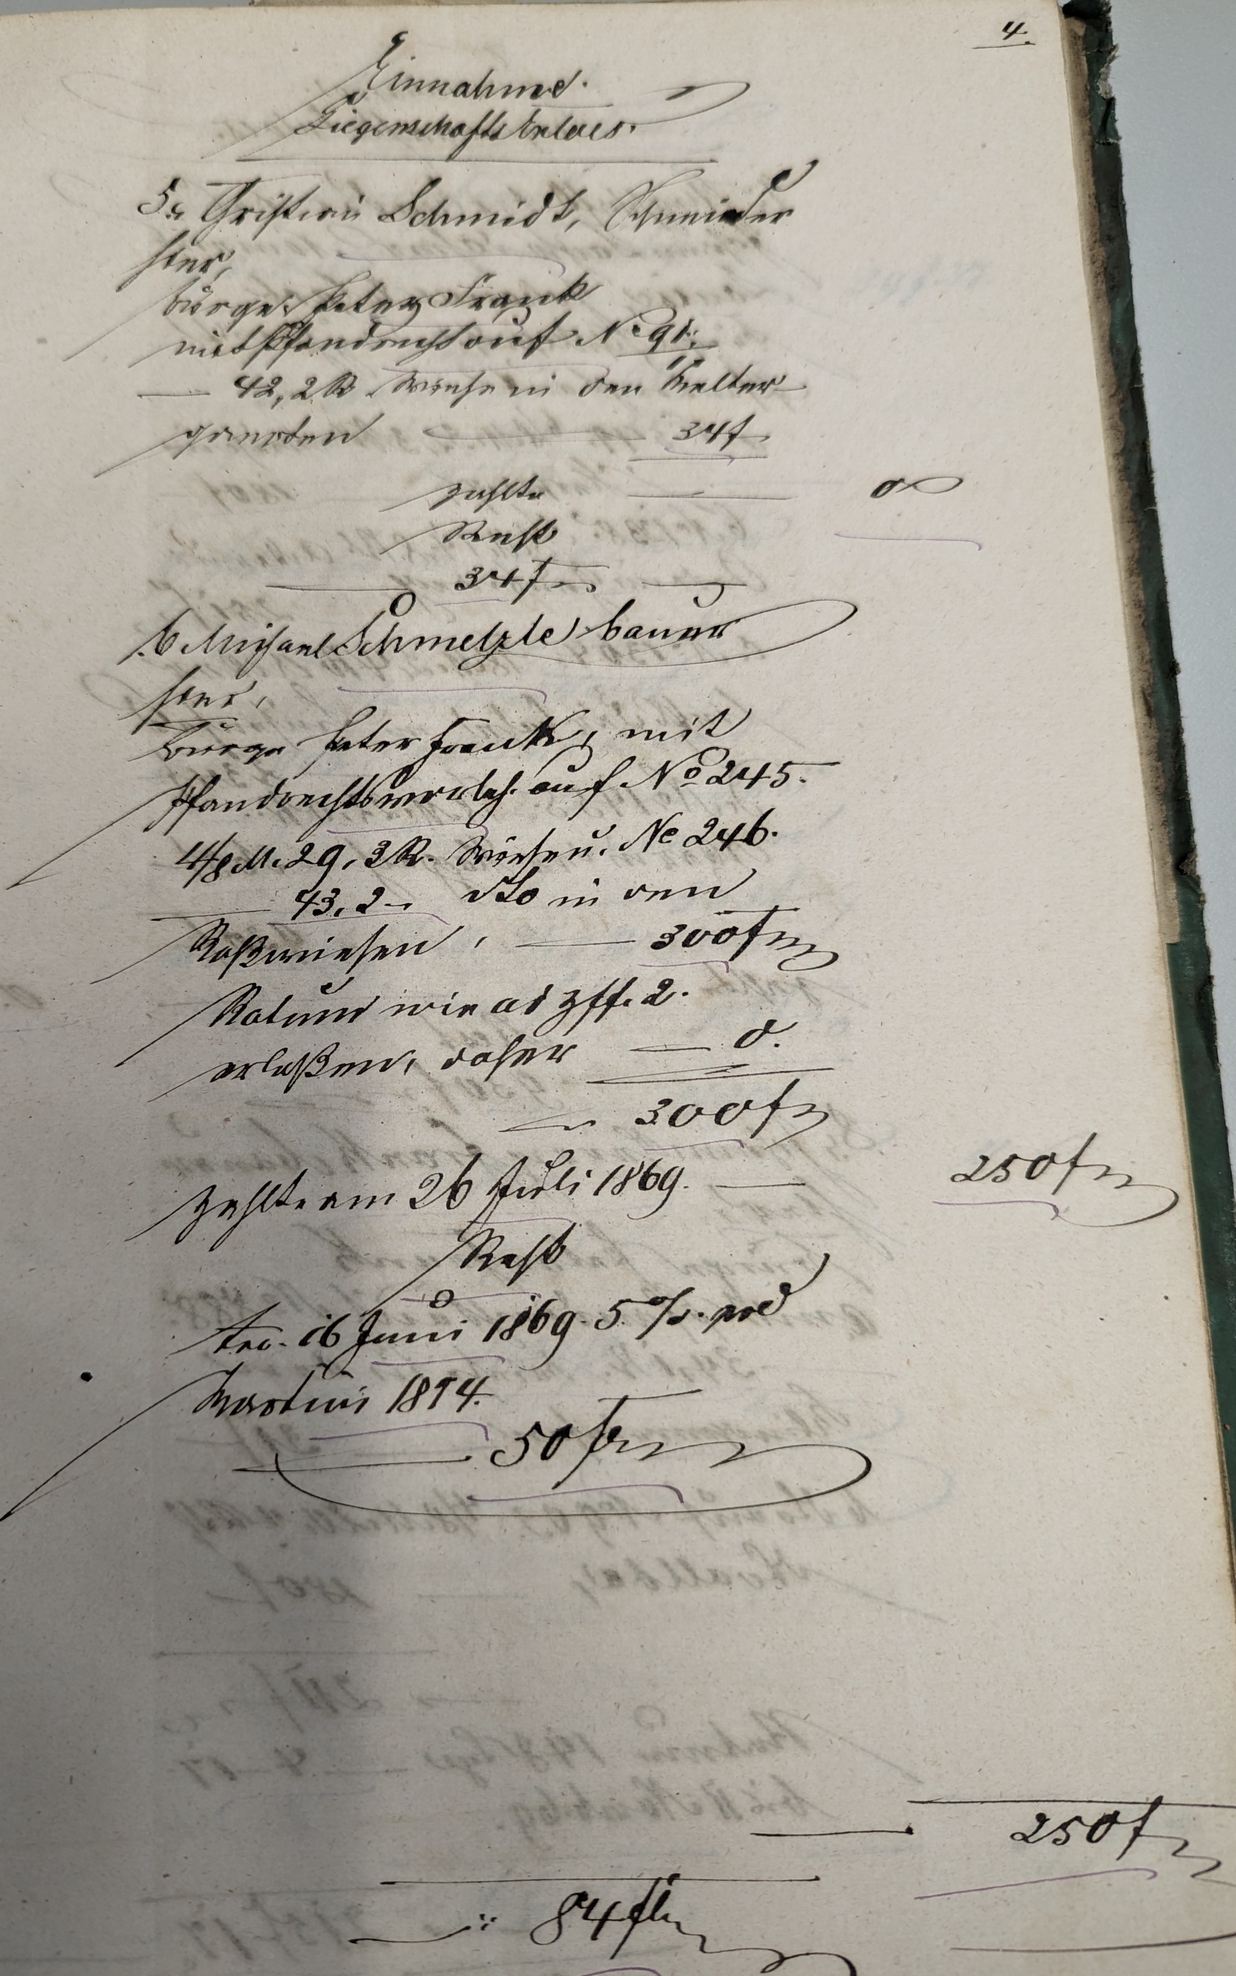 4.
Einnahme.
Liegenschafts Erlöes.
5. Christian Schmidt, Schneider
hier,
Bürge: Peter Frank
mit Pfandrecht auf No 91.
42,2 R. Wiese in den Kelter-
gaerten 34 f
zahlte 0
Rest
34 f
6 Michael Schmelzle Bauer
hier,
Bürge Peter Frank, mit
Pfandrechtsvorbeh. auf No 245.
4/8 M. 29,3 R. Wiese u. No 246.
43,2 dto in den
Roßwiesen, 300 f
Ratum wie ad Zff. 2.
erlaßen, daher 0.
300 f
zahlte am 26 Juli 1869. 250 f
Rest
16 Juni 1869. 5 %. pro
Martini 1874.
50 f
250 f
84 fl